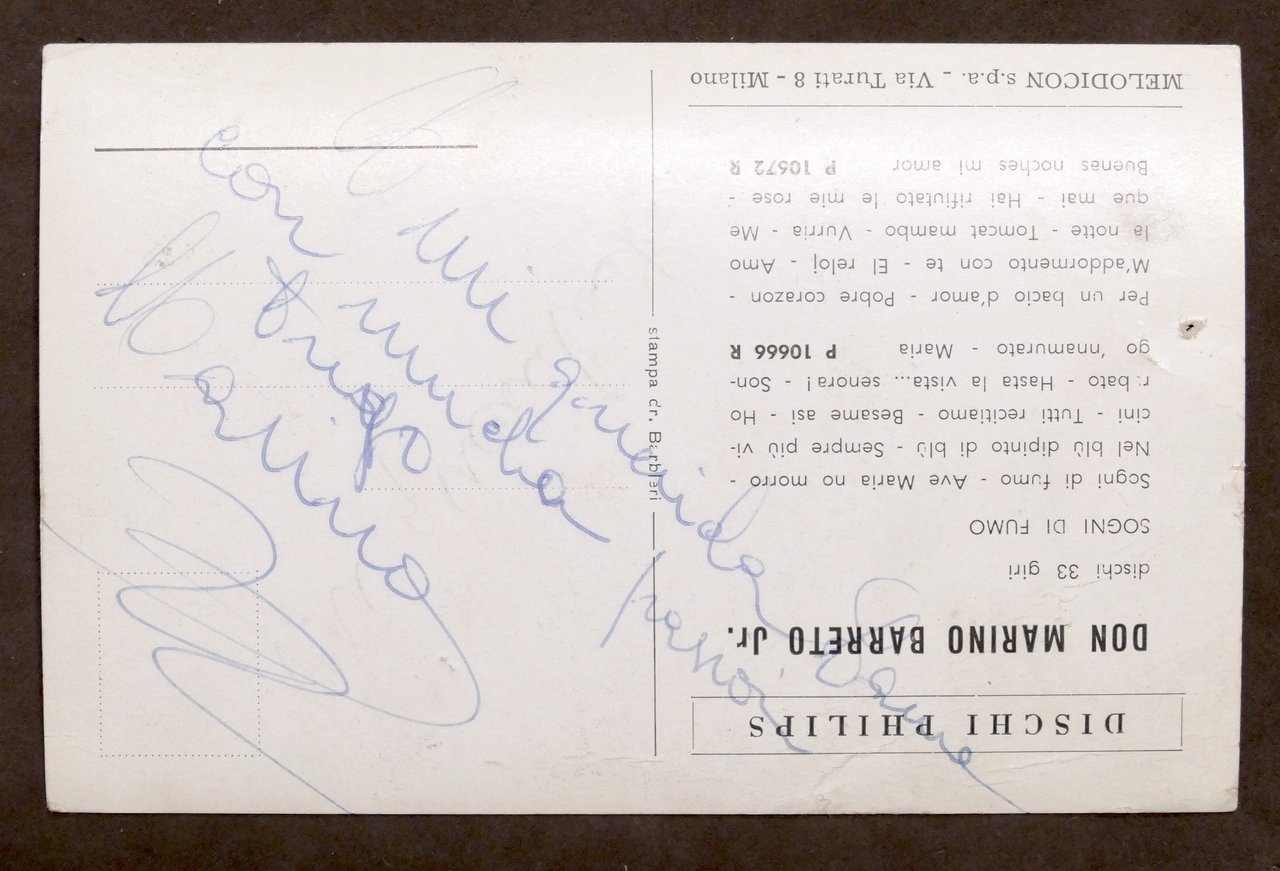 DISCHI PHILIPS
DON MARINO BARRETO Jr.
dischi 33 giri
SOGNI DI FUMO
Sogni di fumo - Ave Maria no morro -
Nel blù dipinto di blù - Sempre più vi-
cini - Tutti recitiamo - Besame asi - Ho
rubato - Hasta la vista... senora ! - Son-
go 'nnamurato - Maria P 10666 R
Per un bacio d'amor - Pobre corazon -
M'addormento con te - El reloj - Amo
la notte - Tomcat mambo - Vurria - Me
que mai - Hai rifiutato le mie rose -
Buenas noches mi amor P 10672 R
MELODICON s.p.a. - Via Turati 8 - Milano
stampa dr. Barbieri
mi querida
con mucha passion
Marino